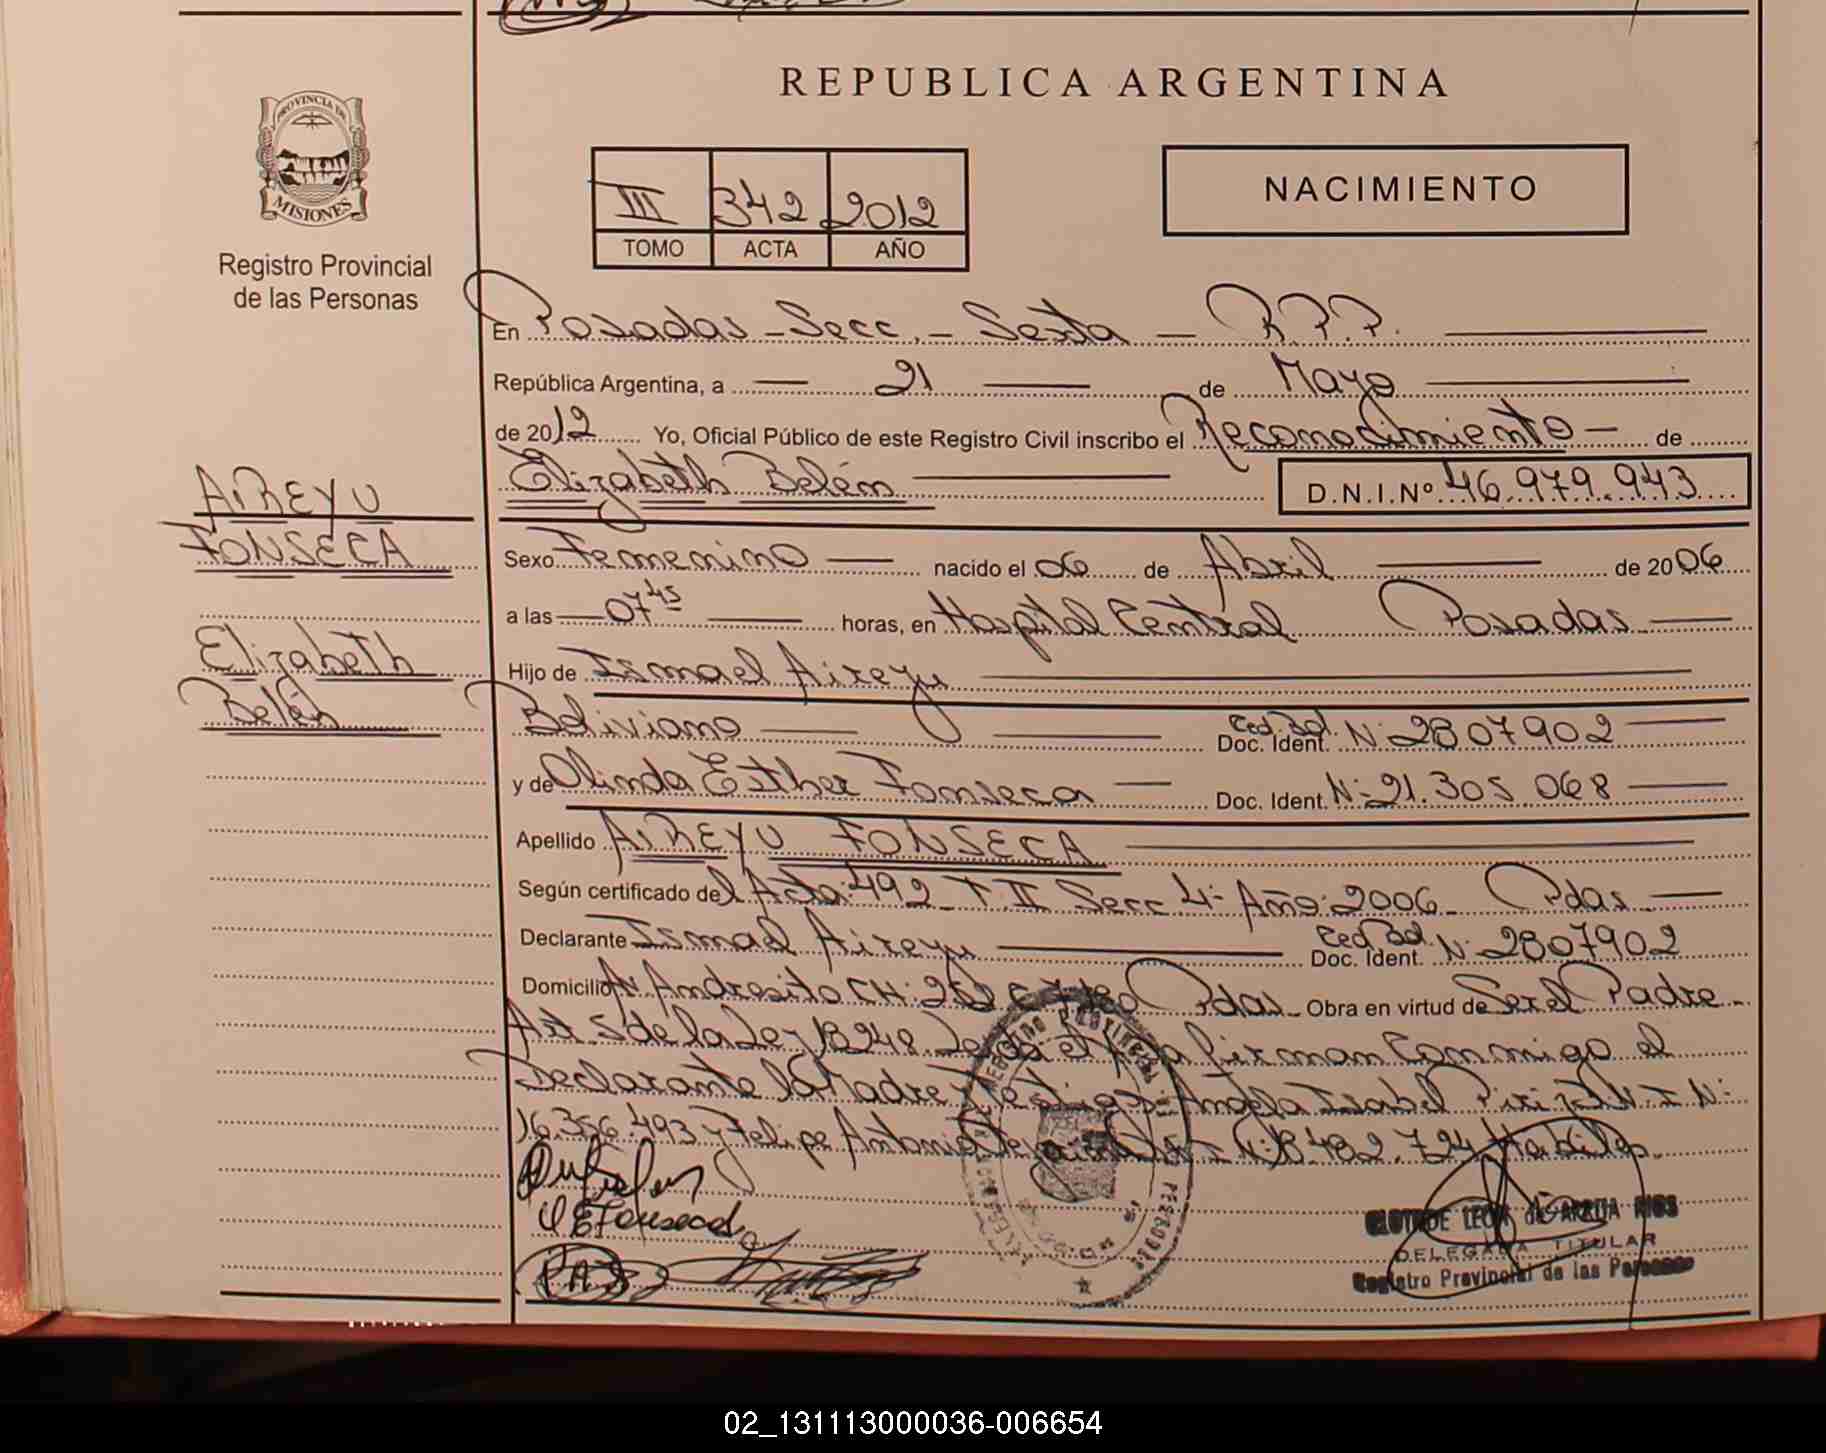 PROVINCIA DE
MISIONES
Registro Provincial
de las Personas
AiREYU
FONSECA
Elizabeth
Belén
REPUBLICA ARGENTINA
III 342 2012
TOMO ACTA AÑO
NACIMIENTO
En Posadas - Secc. - Sexta - R.P.P.
República Argentina, a 21 de Mayo
de 2012 Yo, Oficial Público de este Registro Civil inscribo el Reconocimiento - de
Elizabeth Belén D.N.I.Nº 46.979.943
Sexo Femenino nacido el 06 de Abril de 2006
a las 07 45 horas, en Hospital Central Posadas
Hijo de Ismael Aireyu
Boliviano Ced. Bol. Doc. Ident. N: 2807902
y de Olinda Esther Fonseca Doc. Ident. N: 21.305.068
Apellido AiREYU FONSECA
Según certificado del Acta: 492 T. II Secc 4: Año: 2006 Pdas
Declarante Ismael Aireyu Ced. Bol. Doc. Ident. N: 2807902
Domicilio Andresito CH: Pdas. Obra en virtud de Ser el Padre
Art. 5 de la Ley 18248. el Acta Firman Conmigo el
Declarante la Madre y Testigos Angela Isabel D.N.I N:
16.356.493 y Felipe Antonio N: 18.482.724 Habiles
O E Fonseca
DELEGADA TITULAR
Registro Provincial de las Personas
02_131113000036-006654